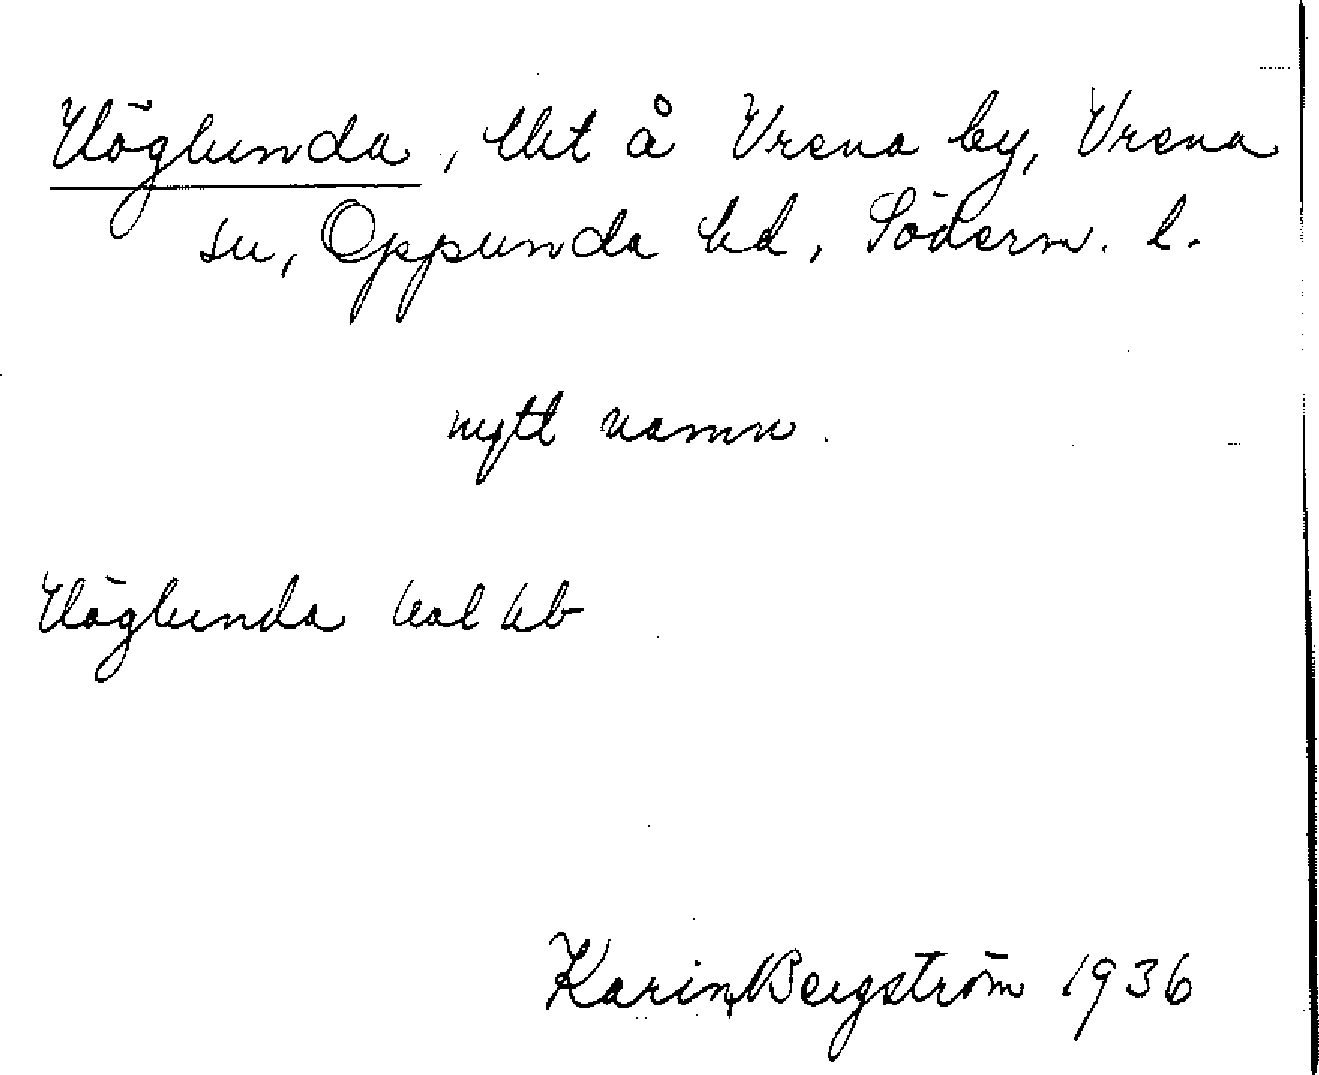 Höglunda, lht å Vrena by, Vrena
sn, Oppunda hd, Söderm. l.
nytt namn.
Höglunda
Karin Bergström 1936